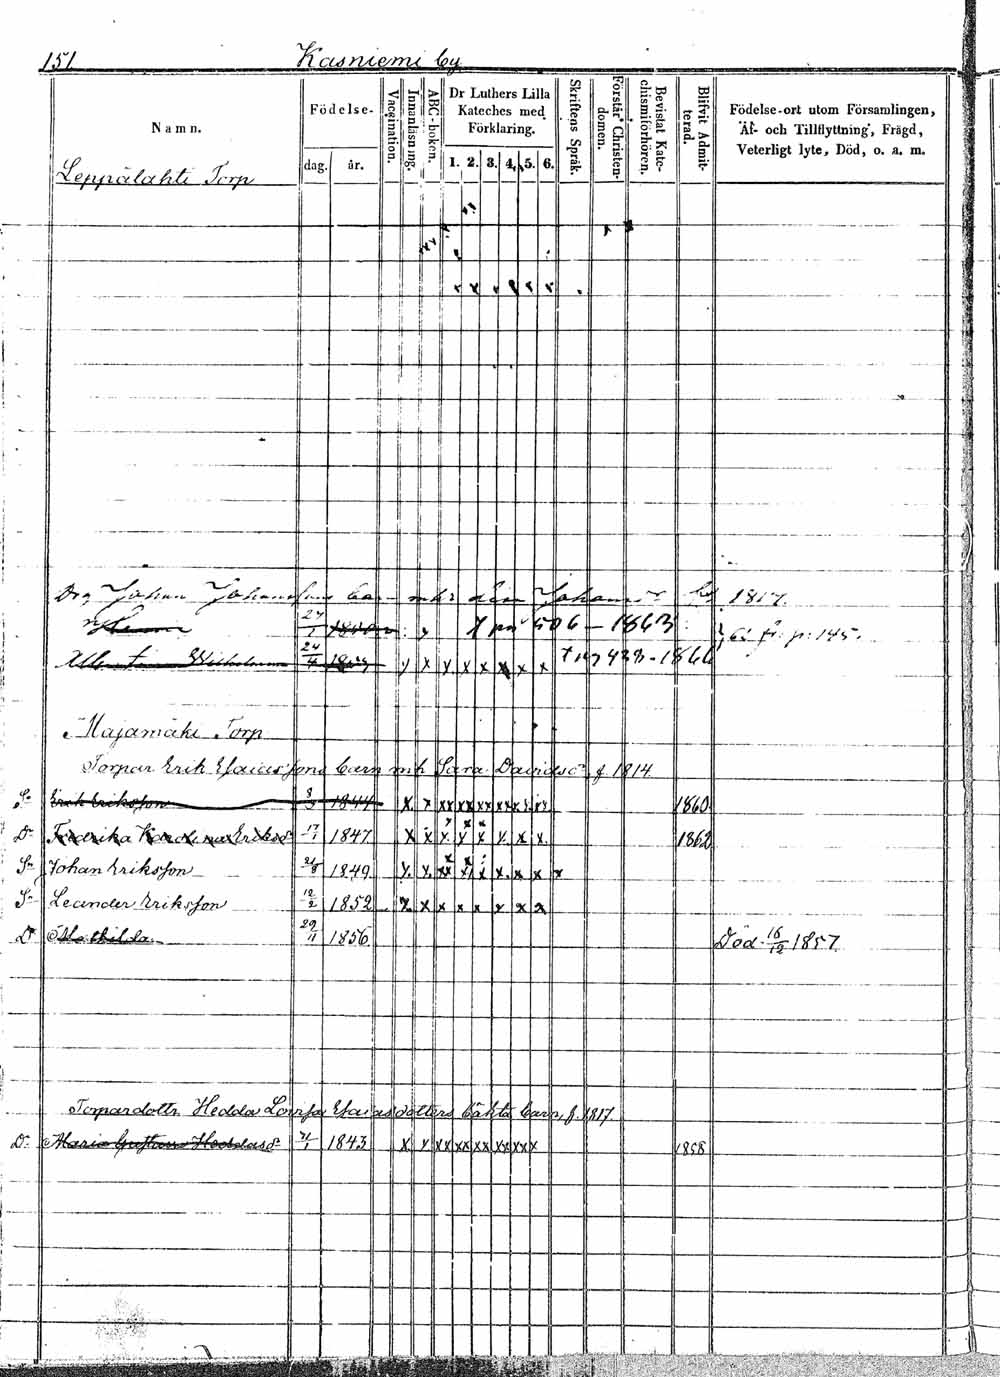 151 Kasniemi by
Namn.
Födelse-
dag. år.
Vaccination.
Innanläsning.
ABC-boken.
Dr Luthers Lilla
Kateches med
Förklaring.
1. 2. 3. 4. 5. 6.
Skriftens Språk.
Förstår Christen-
domen.
Bevistat Kate-
chismiförhören.
Blifvit Admit-
terad.
Födelse-ort utom Församlingen,
Af- och Tillflyttning, Frägd,
Veterligt lyte, Död, o. a. m.
Leppälahti Torp
Johan Johanssons barn 1817.
24/1 506 – 1863
fr. p. 145.
Wilhelmina 24/4 x x x x x x x 1866
Majamäki Torp
Torpar Erik Esaiassons barn mh Sara Davidsdr f. 1814
Sn Erik Eriksson 1844 x x xx xx xx xx xx xx 1860
Dr Fredrika Karolina Eriksdr 17/1 1847 x x x x x x x x 1862
Sn Johan Eriksson 1849
Sn Leander Eriksson 12/2 1852 x x x x x x x x
Dr Mathilda 29/11 1856 Död 16/12 1857
Torpardottr Hedda Lovisa Esaiasdotters oäkta barn, f. 1817
Dr Maria Gustava Heddasdr 1843 x x xx xx xx xx xx x 1858